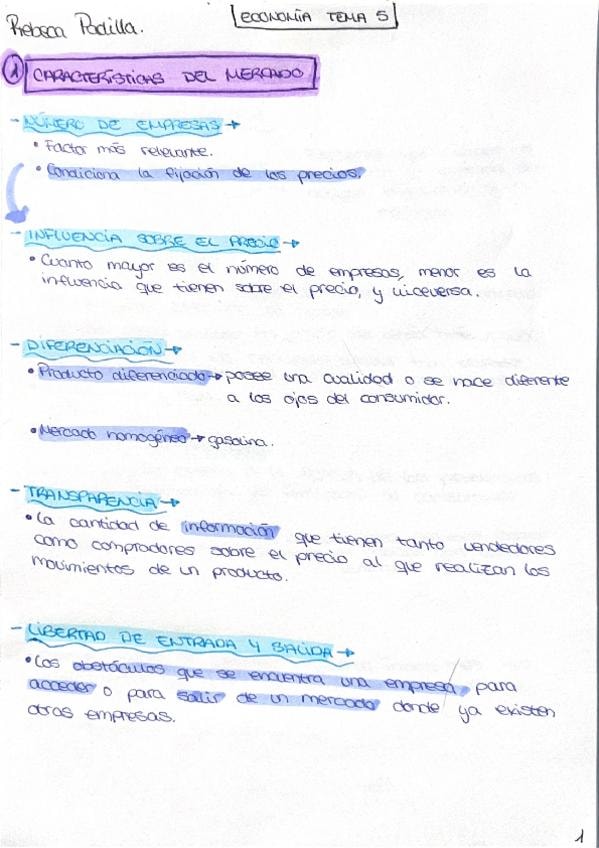 Rebeca Padilla.
ECONOMÍA TEMA 5
1 CARACTERÍSTICAS DEL MERCADO
- NÚMERO DE EMPRESAS →
• Factor más relevante.
• Condiciona la fijación de los precios.
- INFLUENCIA SOBRE EL PRECIO →
• Cuanto mayor es el número de empresas, menor es la
influencia que tienen sobre el precio, y viceversa.
- DIFERENCIACIÓN →
• Producto diferenciado → posee una cualidad o se hace diferente
a los ojos del consumidor.
• Mercado homogéneo → gasolina.
- TRANSPARENCIA →
• La cantidad de información que tienen tanto vendedores
como compradores sobre el precio al que realizan los
movimientos de un producto.
- LIBERTAD DE ENTRADA Y SALIDA →
• Los obstáculos que se encuentra una empresa, para
acceder o para salir de un mercado donde ya existen
otras empresas.
1